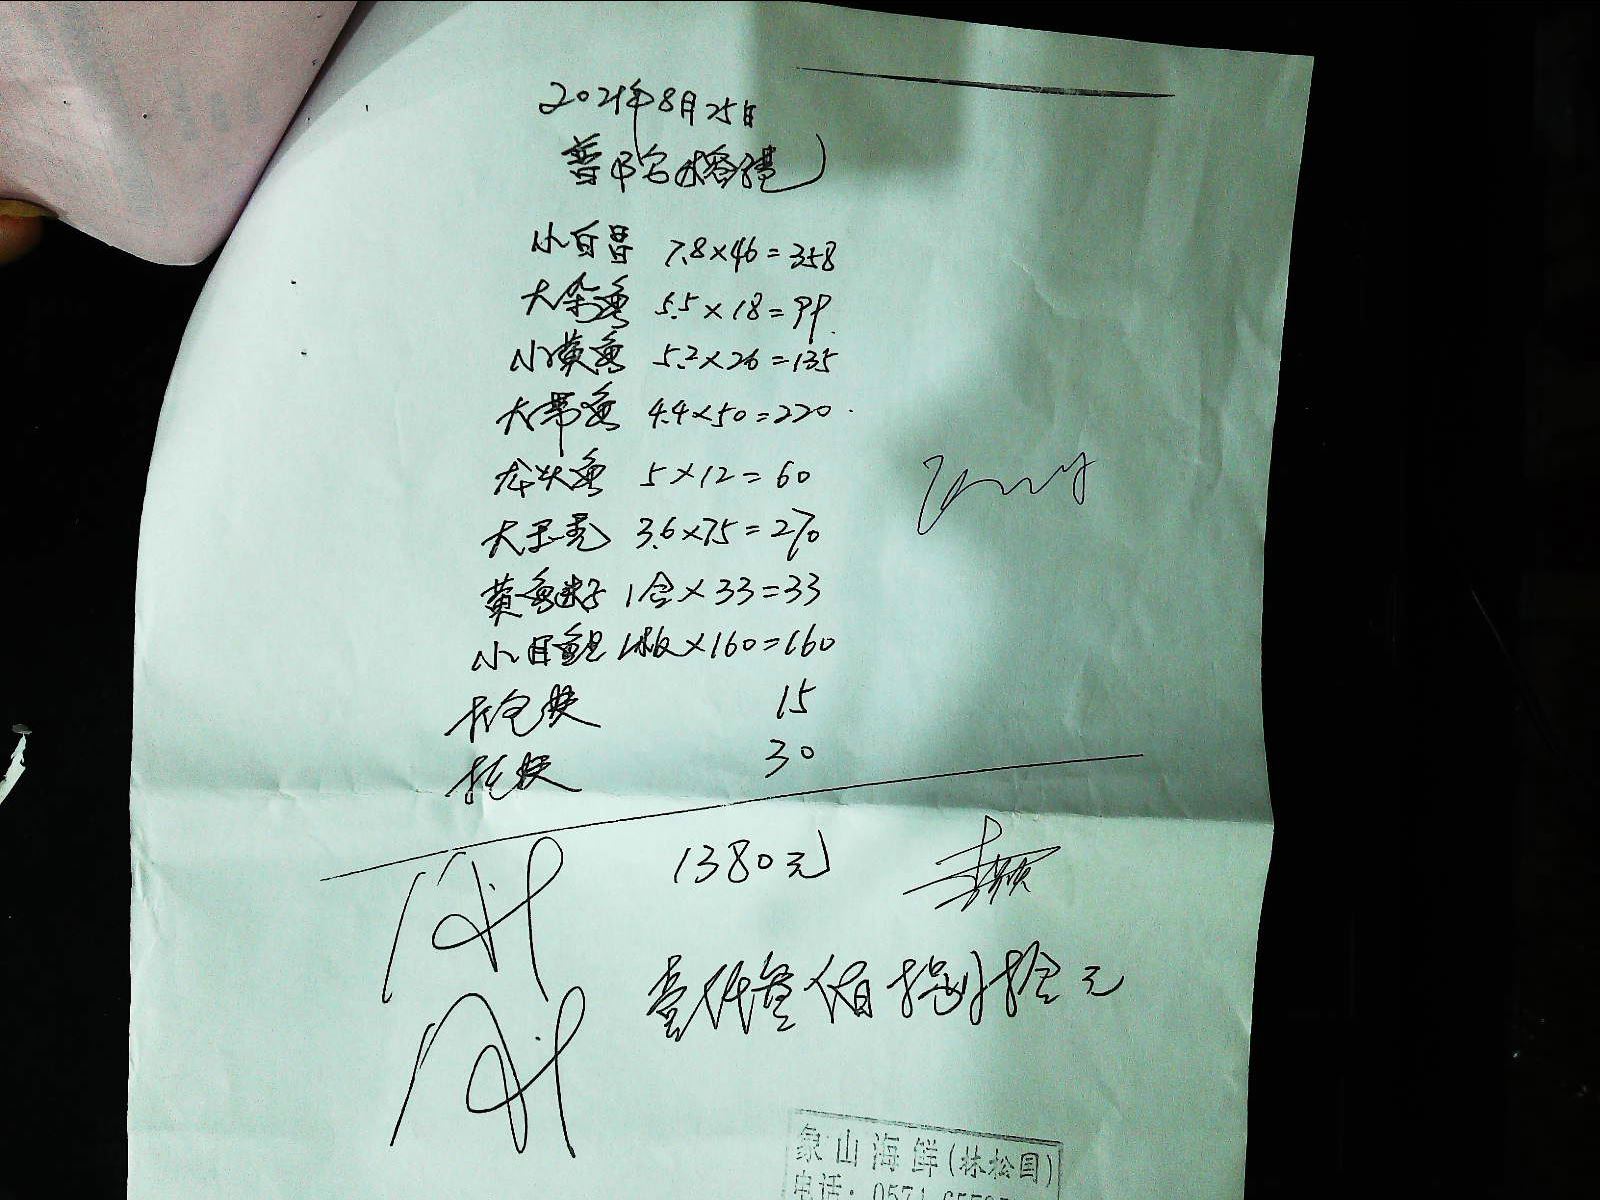 2021年8月25日
小白鲳 7.8×46=358
大杂鱼 5.5×18=99
小黄鱼 5.2×26=135
大带鱼 4.4×50=220
龙头鱼 5×12=60
大玉秃 3.6×75=270
黄鱼籽 1合×33=33
小目鱼 1板×160=160
打包费 15
托费 30
1380元
壹仟叁佰捌拾元
象山海鲜(林松国)
电话:0574